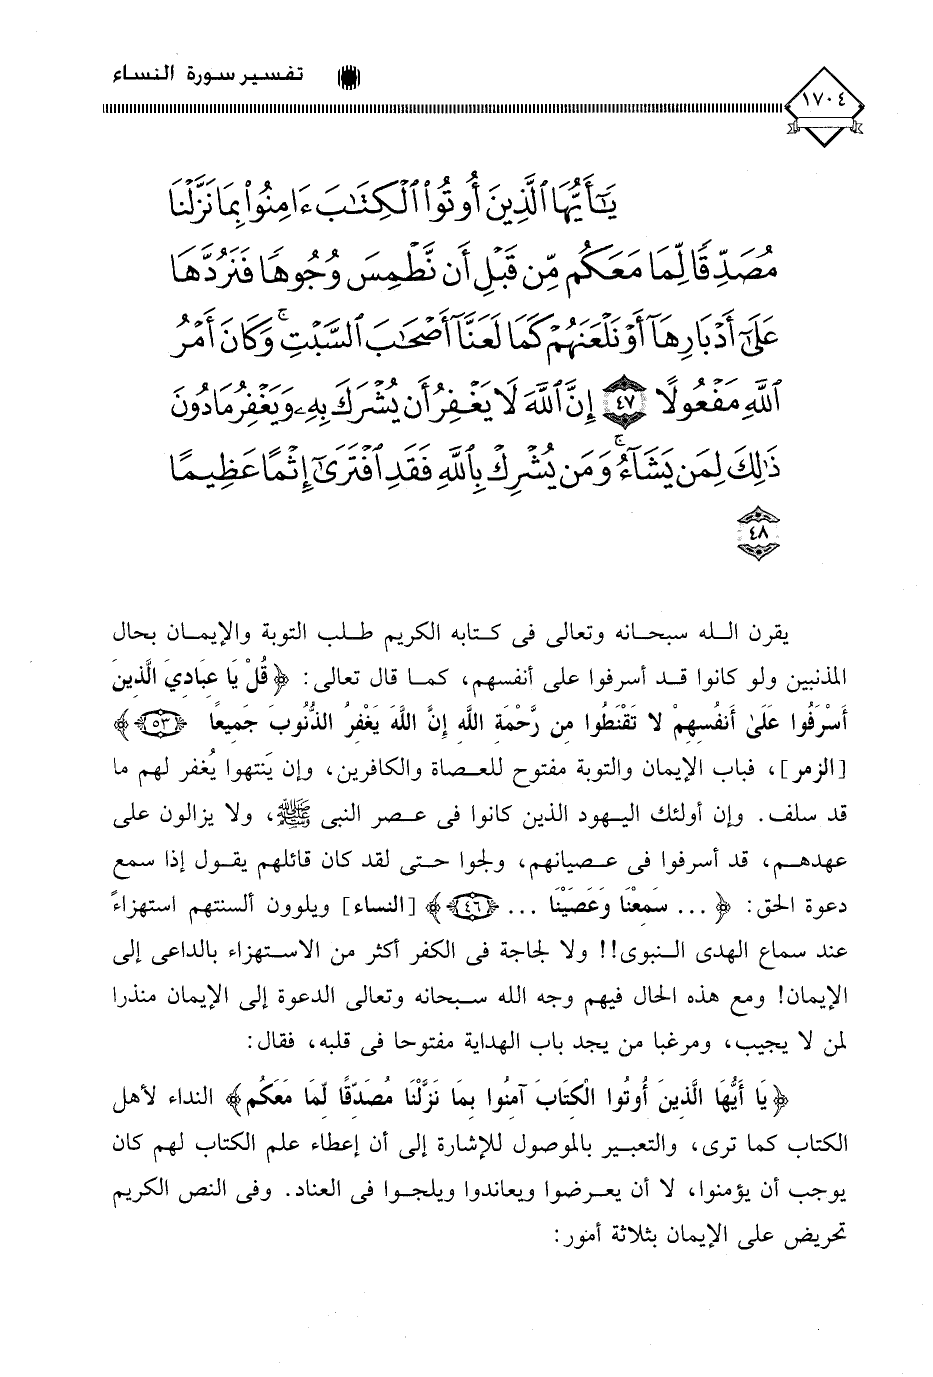 ١٧٠٤ تفسير سورة النساء
يَٰٓأَيُّهَا ٱلَّذِينَ أُوتُوا۟ ٱلْكِتَٰبَ ءَامِنُوا۟ بِمَا نَزَّلْنَا
مُصَدِّقًا لِّمَا مَعَكُم مِّن قَبْلِ أَن نَّطْمِسَ وُجُوهًا فَنَرُدَّهَا
عَلَىٰٓ أَدْبَارِهَآ أَوْ نَلْعَنَهُمْ كَمَا لَعَنَّآ أَصْحَٰبَ ٱلسَّبْتِ ۚ وَكَانَ أَمْرُ
ٱللَّهِ مَفْعُولًا ٤٧ إِنَّ ٱللَّهَ لَا يَغْفِرُ أَن يُشْرَكَ بِهِۦ وَيَغْفِرُ مَا دُونَ
ذَٰلِكَ لِمَن يَشَآءُ ۚ وَمَن يُشْرِكْ بِٱللَّهِ فَقَدِ ٱفْتَرَىٰٓ إِثْمًا عَظِيمًا
٤٨
يقرن الله سبحانه وتعالى فى كتابه الكريم طلب التوبة والإيمان بحال
المذنبين ولو كانوا قد أسرفوا على أنفسهم، كما قال تعالى: ﴿قُلْ يَا عِبَادِيَ الَّذِينَ
أَسْرَفُوا عَلَىٰ أَنفُسِهِمْ لا تَقْنَطُوا مِن رَّحْمَةِ اللَّهِ إِنَّ اللَّهَ يَغْفِرُ الذُّنُوبَ جَمِيعًا ﴿٥٣﴾﴾
[الزمر]، فباب الإيمان والتوبة مفتوح للعصاة والكافرين، وإن يَنتهوا يُغفر لهم ما
قد سلف. وإن أولئك اليهود الذين كانوا فى عصر النبى ﷺ، ولا يزالون على
عهدهم، قد أسرفوا فى عصيانهم، ولجوا حتى لقد كان قائلهم يقول إذا سمع
دعوة الحق: ﴿ ... سَمِعْنَا وَعَصَيْنَا ... ﴿٤٦﴾﴾ [النساء] ويلوون ألسنتهم استهزاءً
عند سماع الهدى النبوى!! ولا لجاجة فى الكفر أكثر من الاستهزاء بالداعى إلى
الإيمان! ومع هذه الحال فيهم وجه الله سبحانه وتعالى الدعوة إلى الإيمان منذرا
لمن لا يجيب، ومرغبا من يجد باب الهداية مفتوحا فى قلبه، فقال:
﴿يَا أَيُّهَا الَّذِينَ أُوتُوا الْكِتَابَ آمِنُوا بِمَا نَزَّلْنَا مُصَدِّقًا لِّمَا مَعَكُم﴾ النداء لأهل
الكتاب كما ترى، والتعبير بالموصول للإشارة إلى أن إعطاء علم الكتاب لهم كان
يوجب أن يؤمنوا، لا أن يعرضوا ويعاندوا ويلجوا فى العناد. وفى النص الكريم
تحريض على الإيمان بثلاثة أمور: